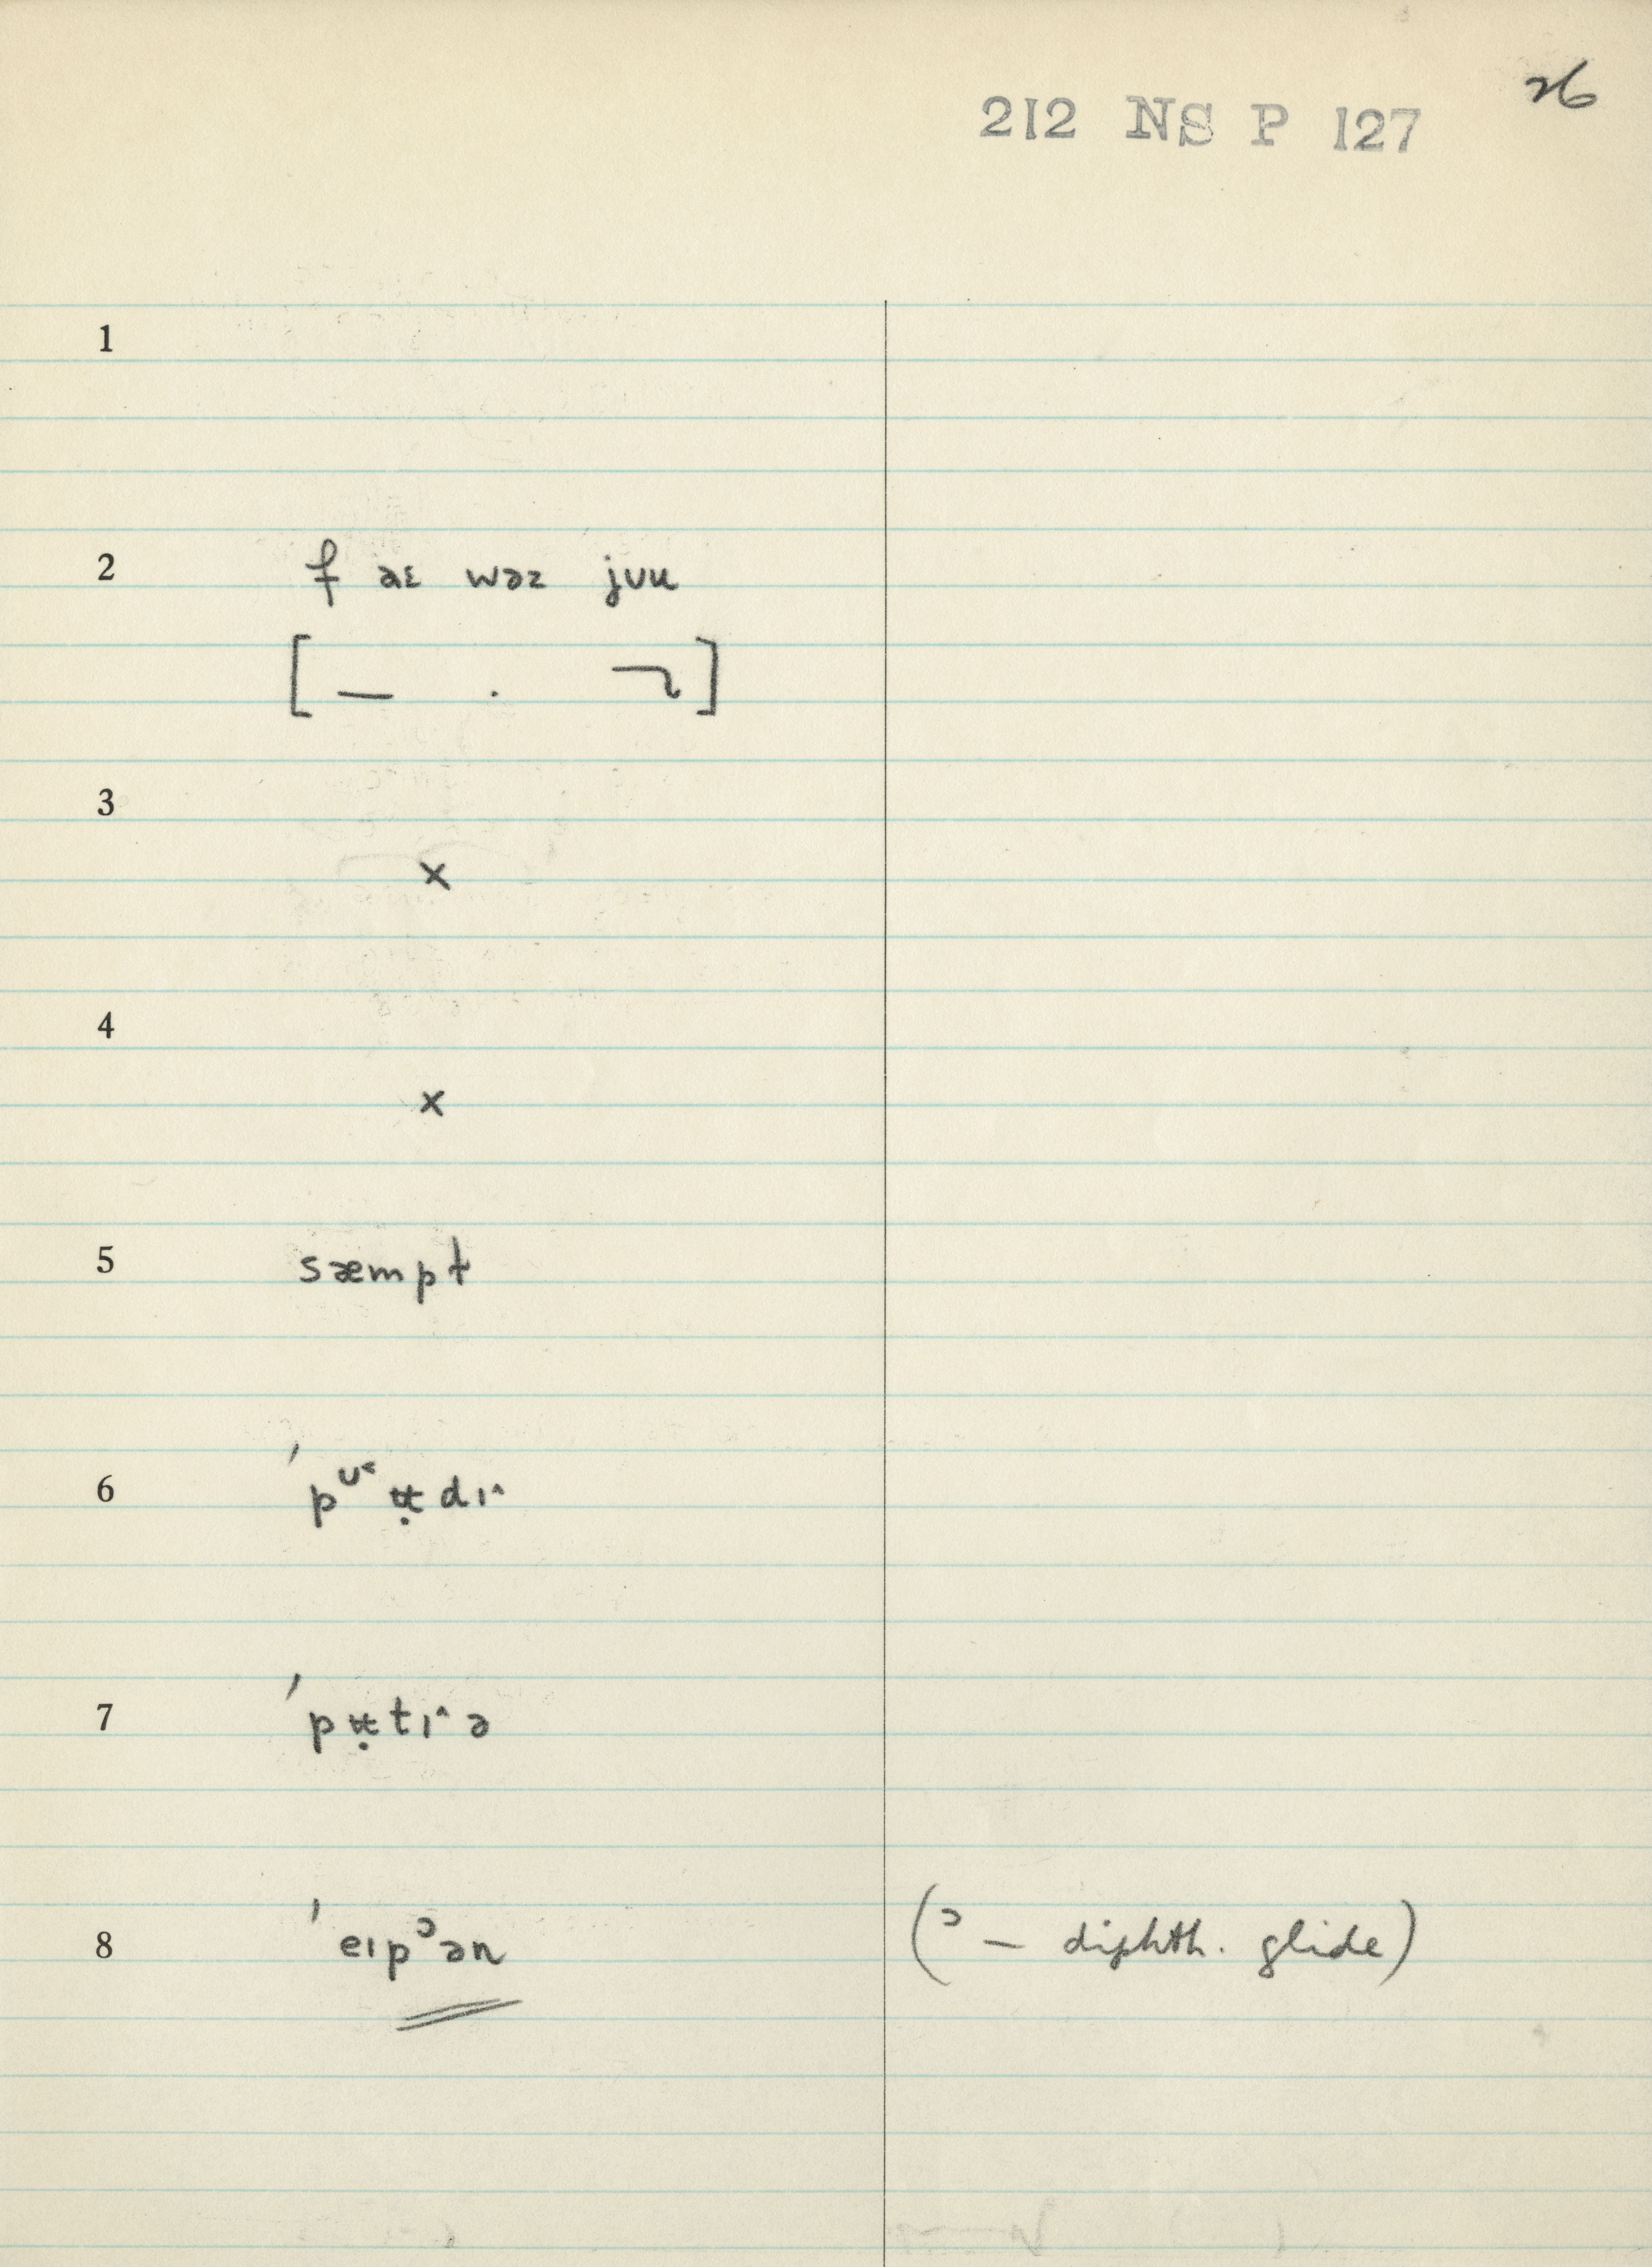 26
212 NS P 127
1
2 f aɛ wəz jʊu
[ — . ]
3
x
4
x
5 sæmpt
6 ˈpᶷ˂ʉ̣dɪ^
7 ˈpʉ̣tɪ^ə
8 ˈeɪpᵓən (ᵓ — diphth. glide)